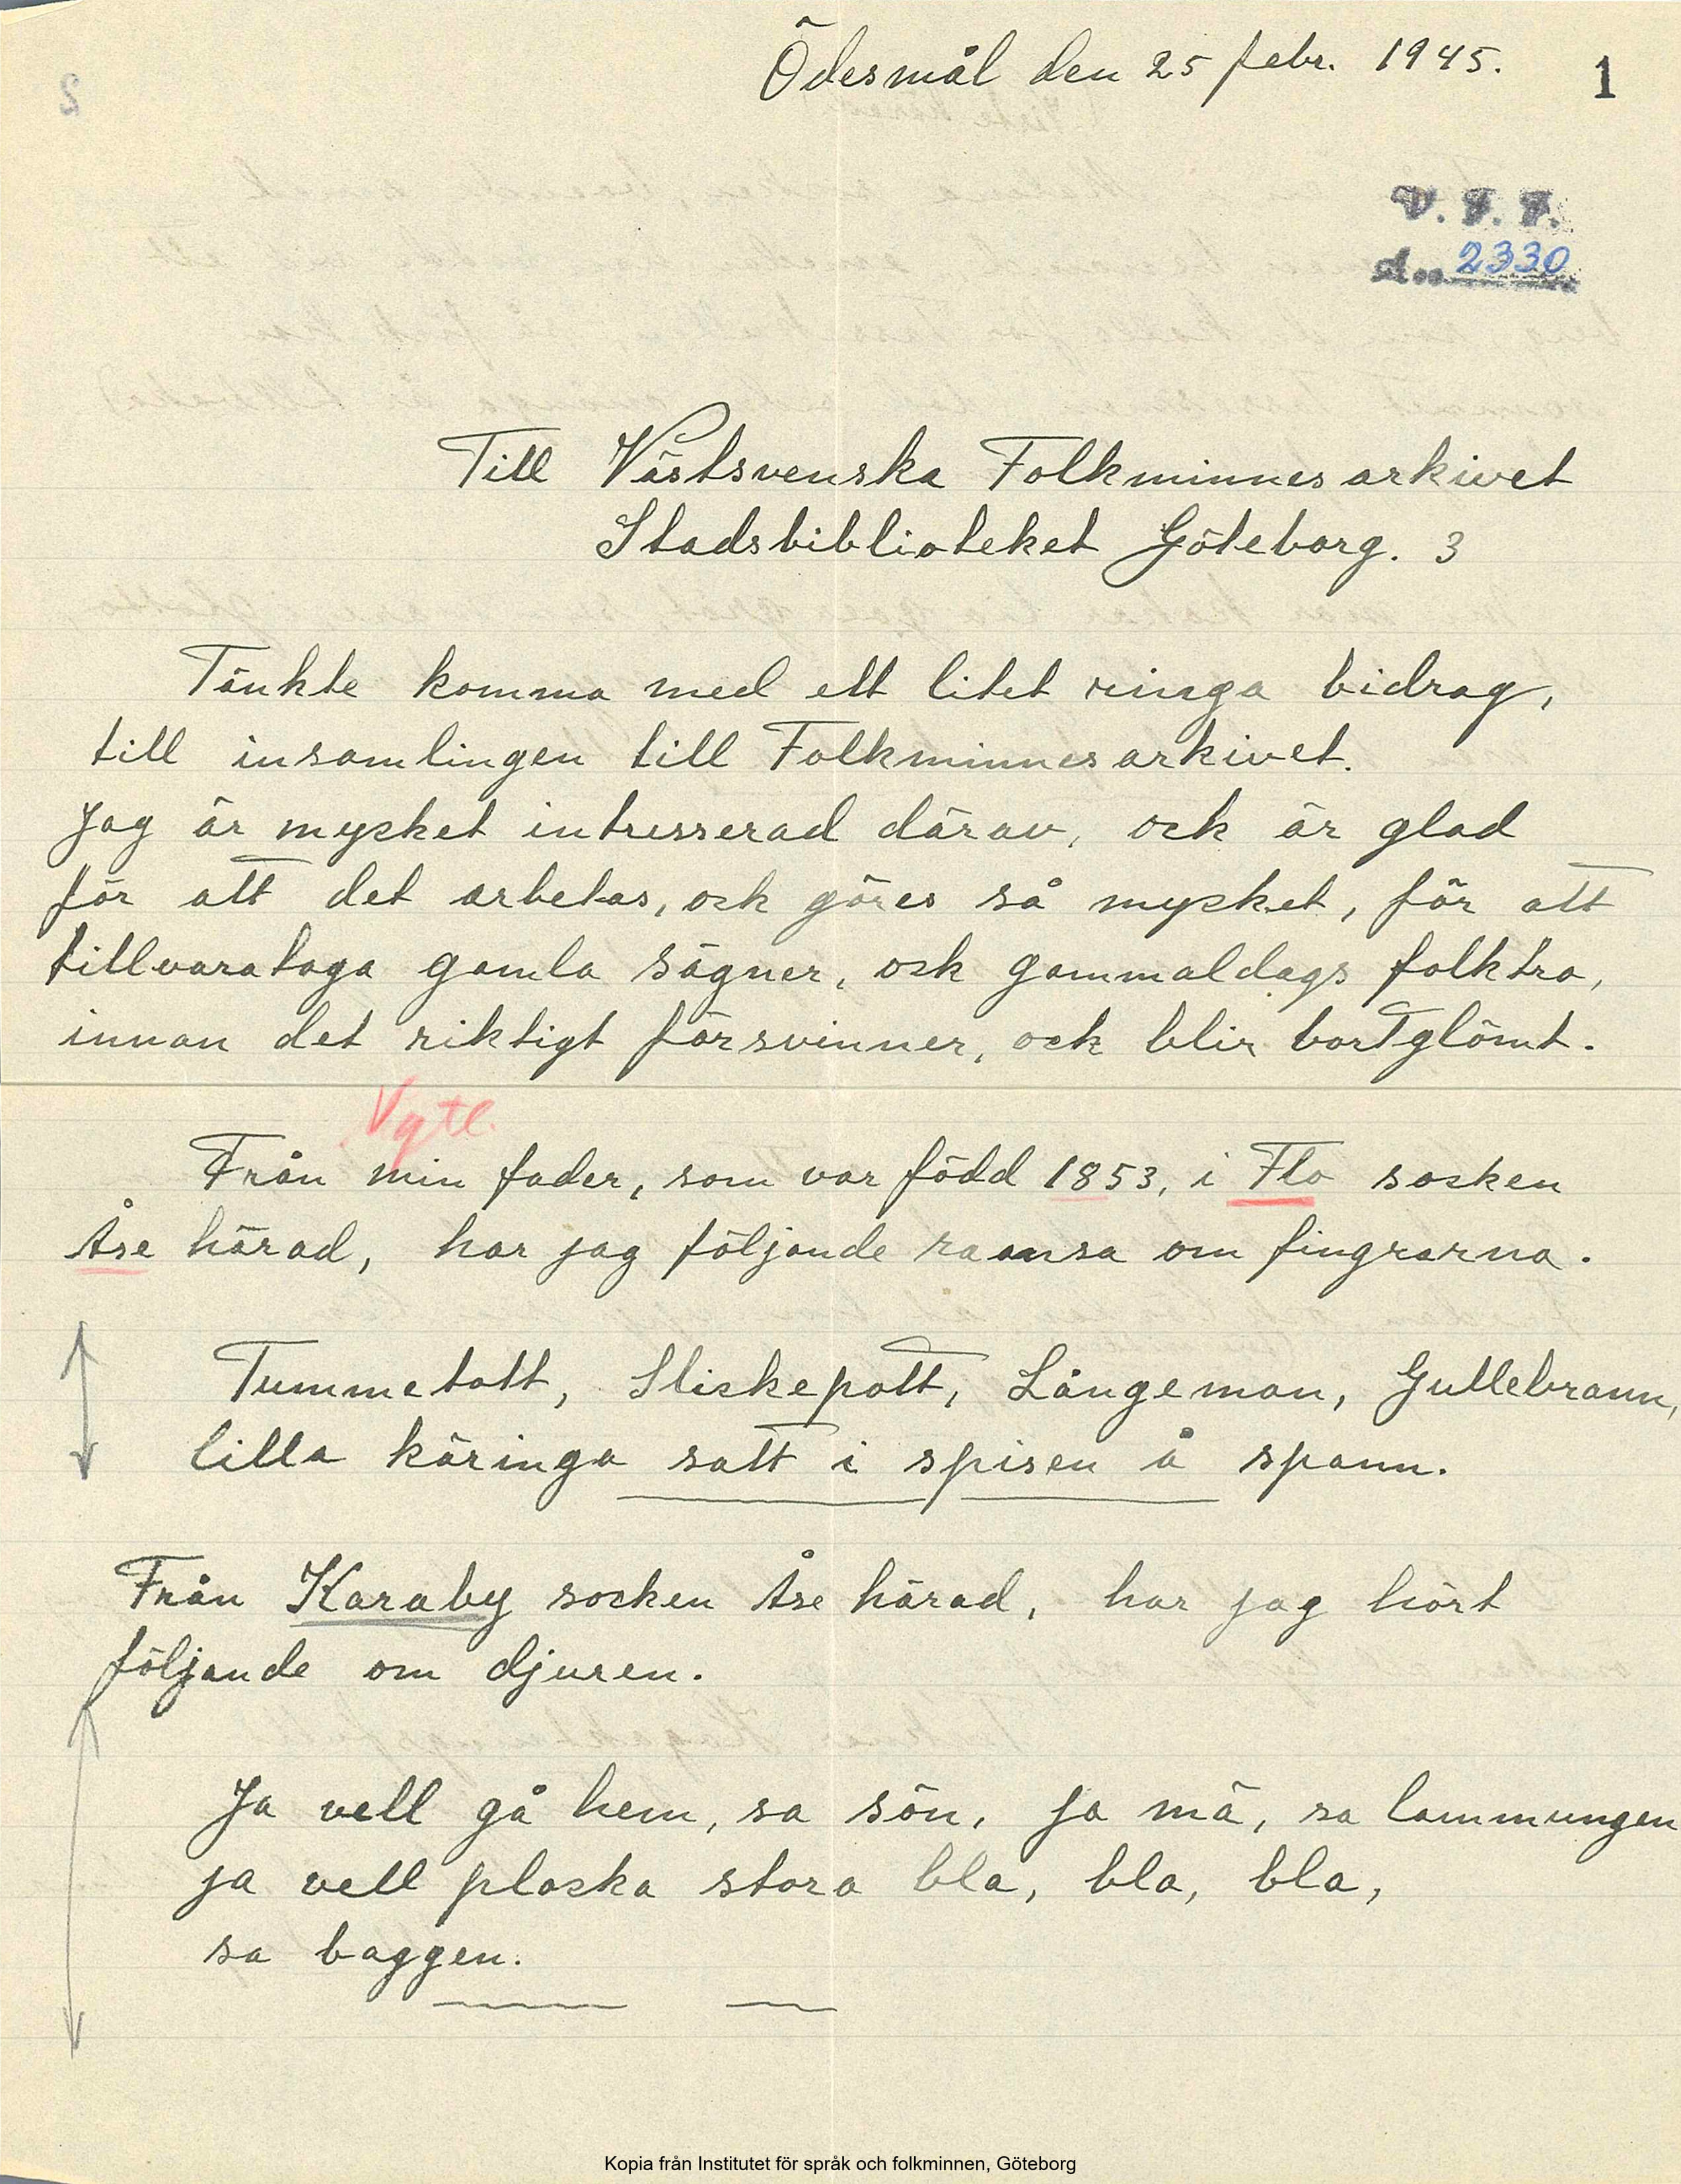 Ödesmål den 25 febr. 1945.
1
V. F. F.
d... 2330
Till Västsvenska Folkminnesarkivet
Stadsbiblioteket Göteborg. 3
Tänkte komma med ett litet ringa bidrag,
till insamlingen till Folkminnesarkivet.
Jag är mycket intresserad därav, ock är glad
för att det arbetas, ock göres så mycket, för att
tillvarataga gamla sägner, ock gammaldags folktro,
innan det riktigt försvinner, ock blir bortglömt.
Vgtl.
Från min fader, som var född 1853, i Flo socken
Åse härad, har jag följande ramsa om fingrarna.
Tummetott, Slickepott, Långeman, Gullebrann,
lilla käringa satt i spisen å spann.
Från Karaby socken Åse härad, har jag hört
följande om djuren.
Ja vell gå hem, sa sön, ja mä, sa lammungen
ja vell plocka stora bla, bla, bla,
sa baggen.
Kopia från Institutet för språk och folkminnen, Göteborg